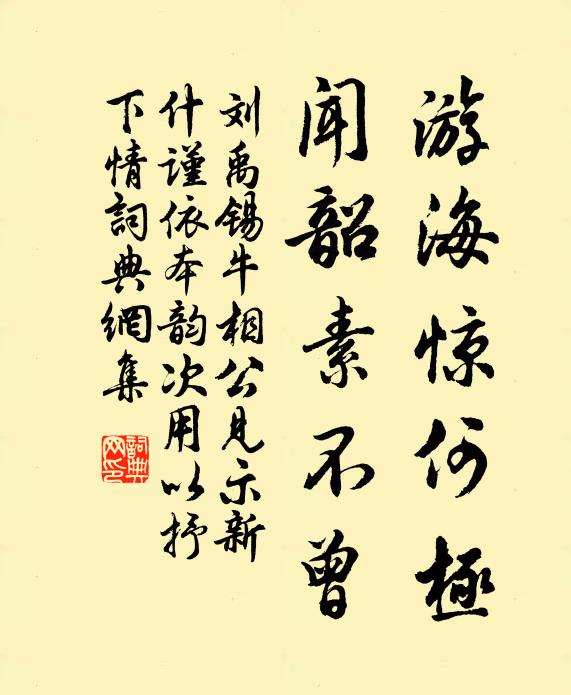 游海惊何極
闻韶素不曾
刘禹锡牛相公見示新
什謹依本韵次用以抒
下情詞典網集
詞典网印